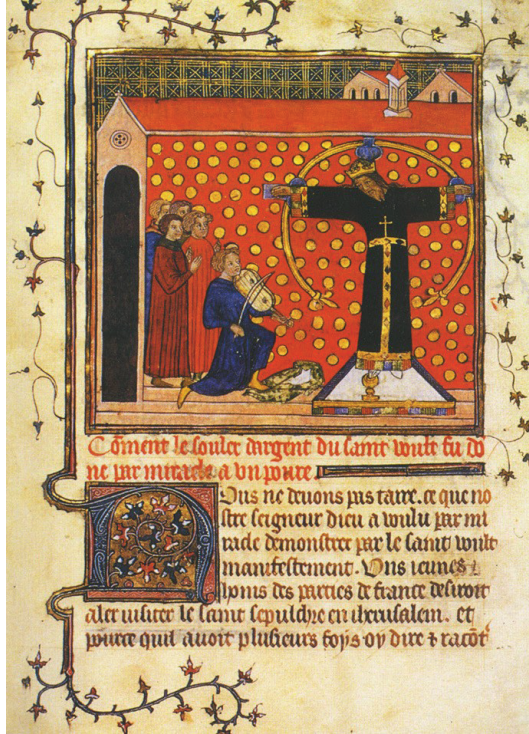 Coment le souler dargent du saint voult fu do
ne par miracle a un poure.
Nous ne deuons pas taire. ce que no
stre seigneur dieu a voulu par mi
racle demonstrer par le saint voult
manifestement. Uns ieunes
homs des parties de france desiroit
aler uisiter le saint sepulchre en iherusalem. et
pource quil auoit plusieurs foys oy dire & racōt